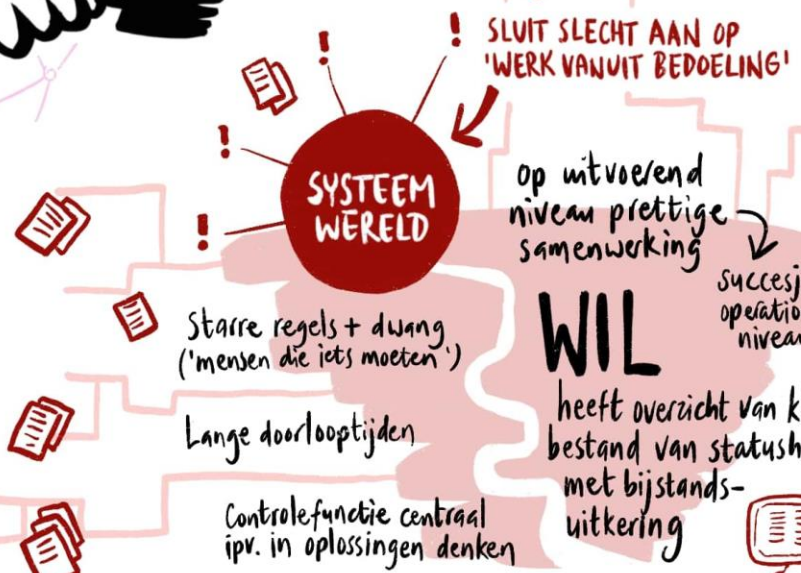 SLUIT SLECHT AAN OP
'WERK VANUIT BEDOELING'
SYSTEEM
WERELD
op uitvoerend
niveau prettige
samenwerking
Starre regels + dwang
('mensen die iets moeten')
Lange doorlooptijden
Controlefunctie centraal
ipv. in oplossingen denken
WIL
heeft overzicht van
bestand van
met bijstands-
uitkering
niveau